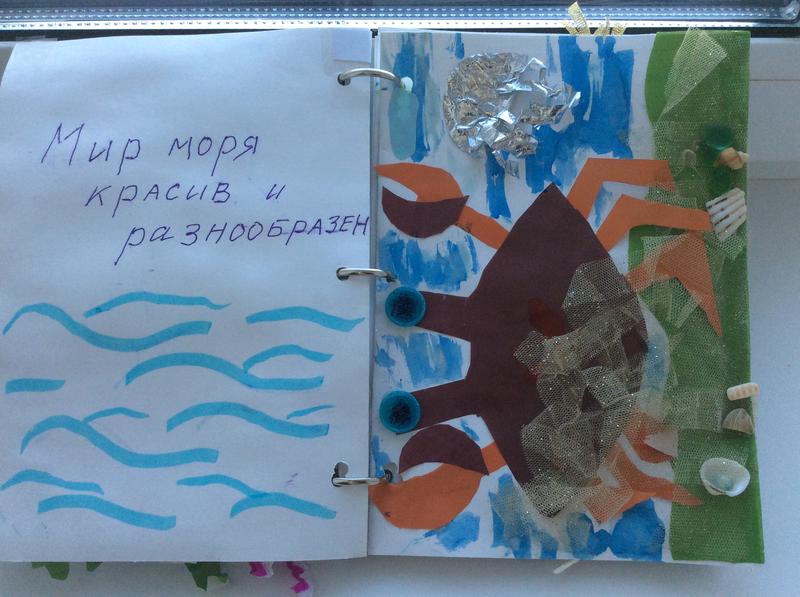 Мир моря
красив и
разнообразен